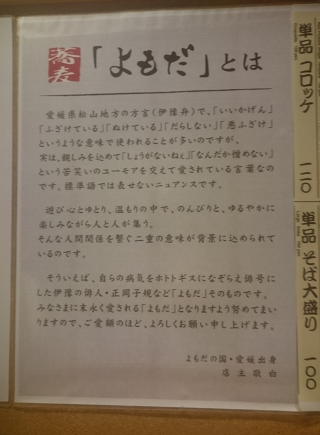 蕎麦
「よもだ」とは
愛媛県松山地方の方言(伊豫弁)で、「いいかげん」
「ふざけている」「ぬけている」「だらしない」「悪ふざけ」
というような意味で使われることが多いのですが、
実は、親しみを込めて「しょうがないねぇ」「なんだか憎めない」
という苦笑いのユーモアを交えて愛されている言葉なの
です。標準語では表せないニュアンスです。
遊び心とゆとり、温もりの中で、のんびりと、ゆるやかに
楽しみながら人と人が集う。
そんな人間関係を繋ぐ二重の意味が背景に込められて
いるのです。
そういえば、自らの病気をホトトギスになぞらえ俳号に
した伊豫の俳人・正岡子規など「よもだ」そのものです。
みなさまに末永く愛される「よもだ」となりますよう努めてまい
りますので、ご愛顧のほど、よろしくお願い申し上げます。
よもだの国・愛媛出身
店主敬白
単品 コロッケ
一二〇
単品 そば大盛り
一〇〇